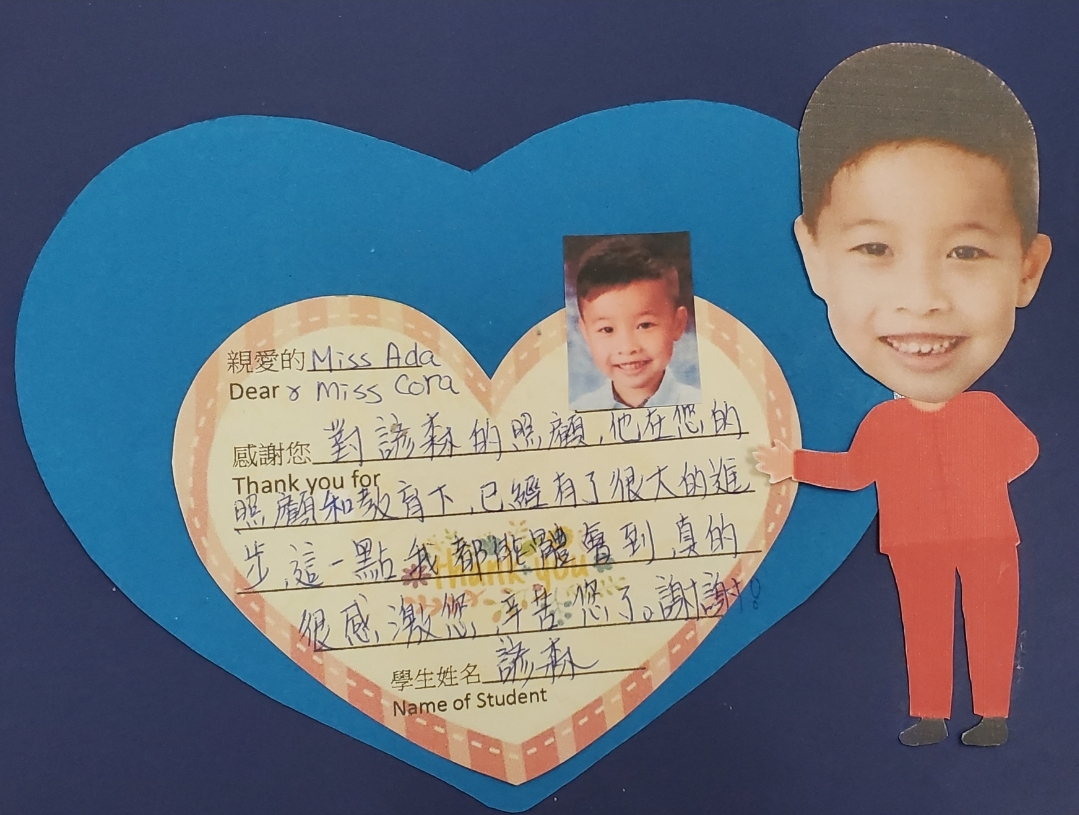 親愛的 Miss Ada
Dear & Miss Cora
感謝您 對諺森的照顧,他在您的
Thank you for
照顧和教育下,已經有了很大的進
步,這一點我都能體會到,真的
thank you
很感激您,辛苦您了。謝謝!
學生姓名 諺森
Name of Student